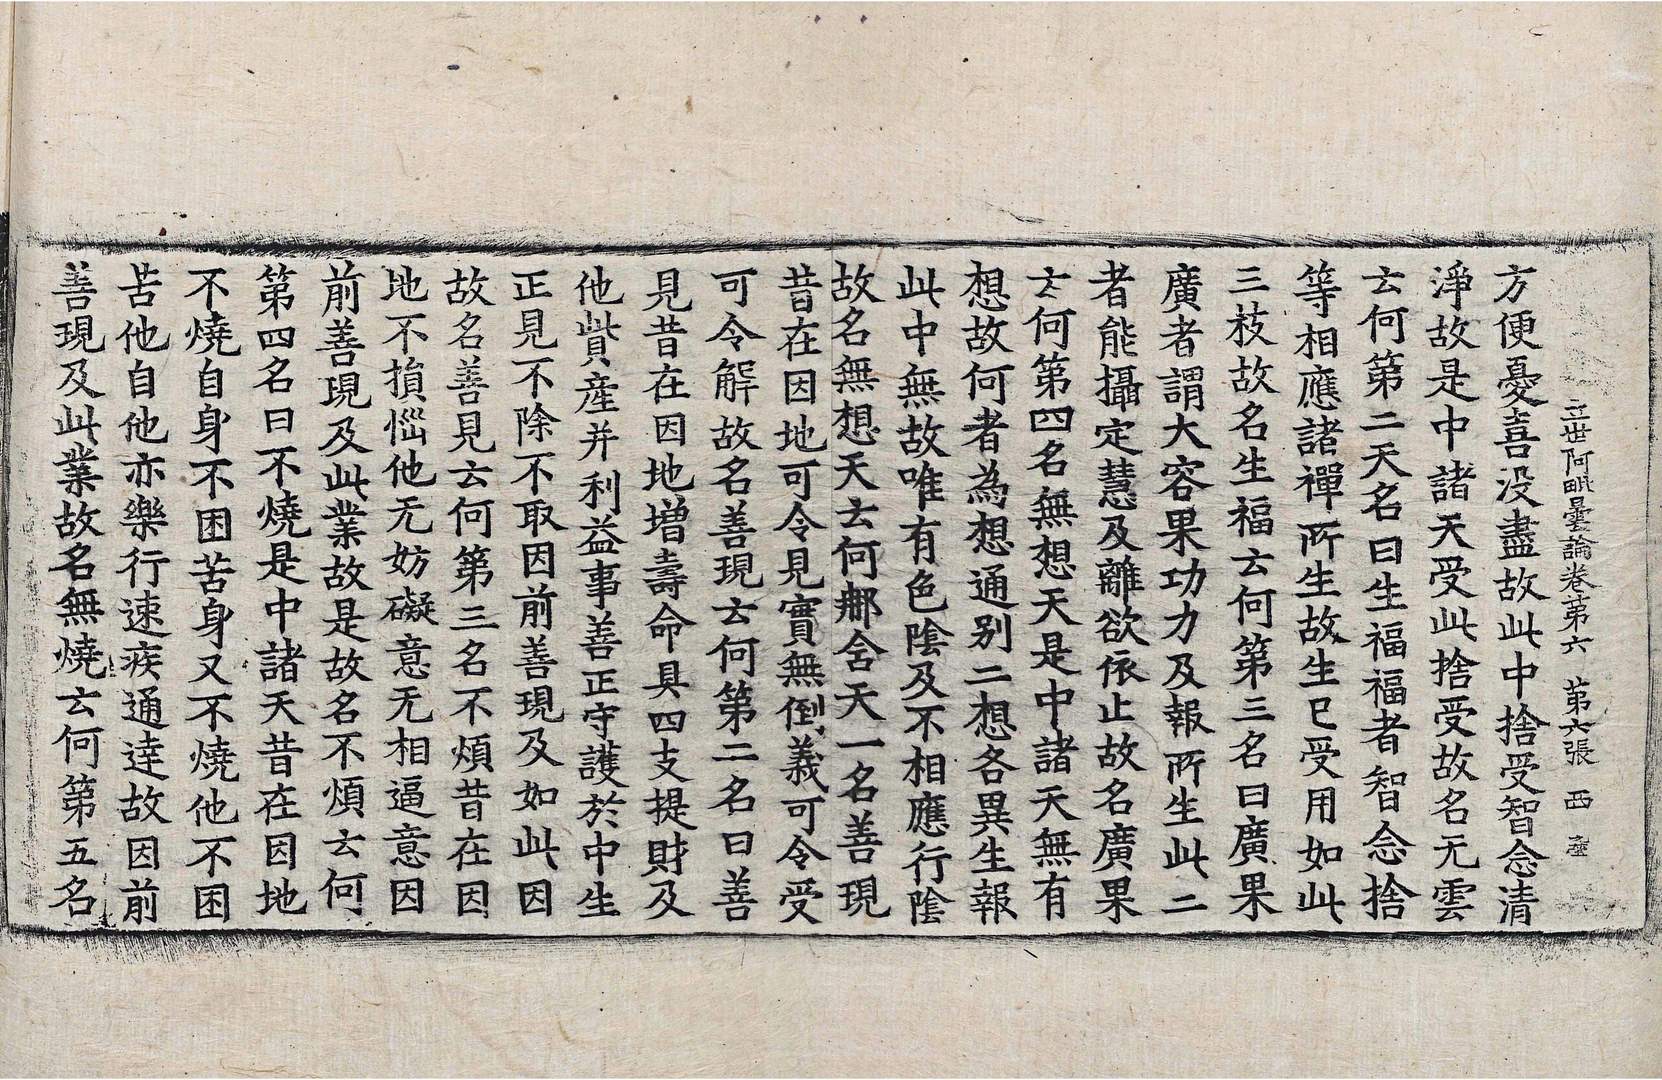 立世阿毗曇論卷第六　第六張　西
方便憂喜没盡故此中捨受智念清
淨故是中諸天受此捨受故名无雲
云何第二天名曰生福福者智念捨
等相應諸禪所生故生已受用如此
三枝故名生福云何第三名曰廣果
廣者謂大容果功力及報所生此二
者能攝定慧及離欲依止故名廣果
云何第四名無想天是中諸天無有
想故何者為想通别二想各異生報
此中無故唯有色陰及不相應行陰
故名無想天云何那舍天一名善現
昔在因地可令見實無倒義可令受
可令解故名善現云何第二名曰善
見昔在因地增壽命具四支提財及
他貲產并利益事善正守護於中生
正見不除不取因前善現及如此因
故名善見云何第三名不煩昔在因
地不損惱他无妨礙意无相逼意因
前善現及此業故是故名不煩云何
第四名曰不燒是中諸天昔在因地
不燒自身不困苦身又不燒他不困
苦他自他亦樂行速疾通達故因前
善現及此業故名無燒云何第五名